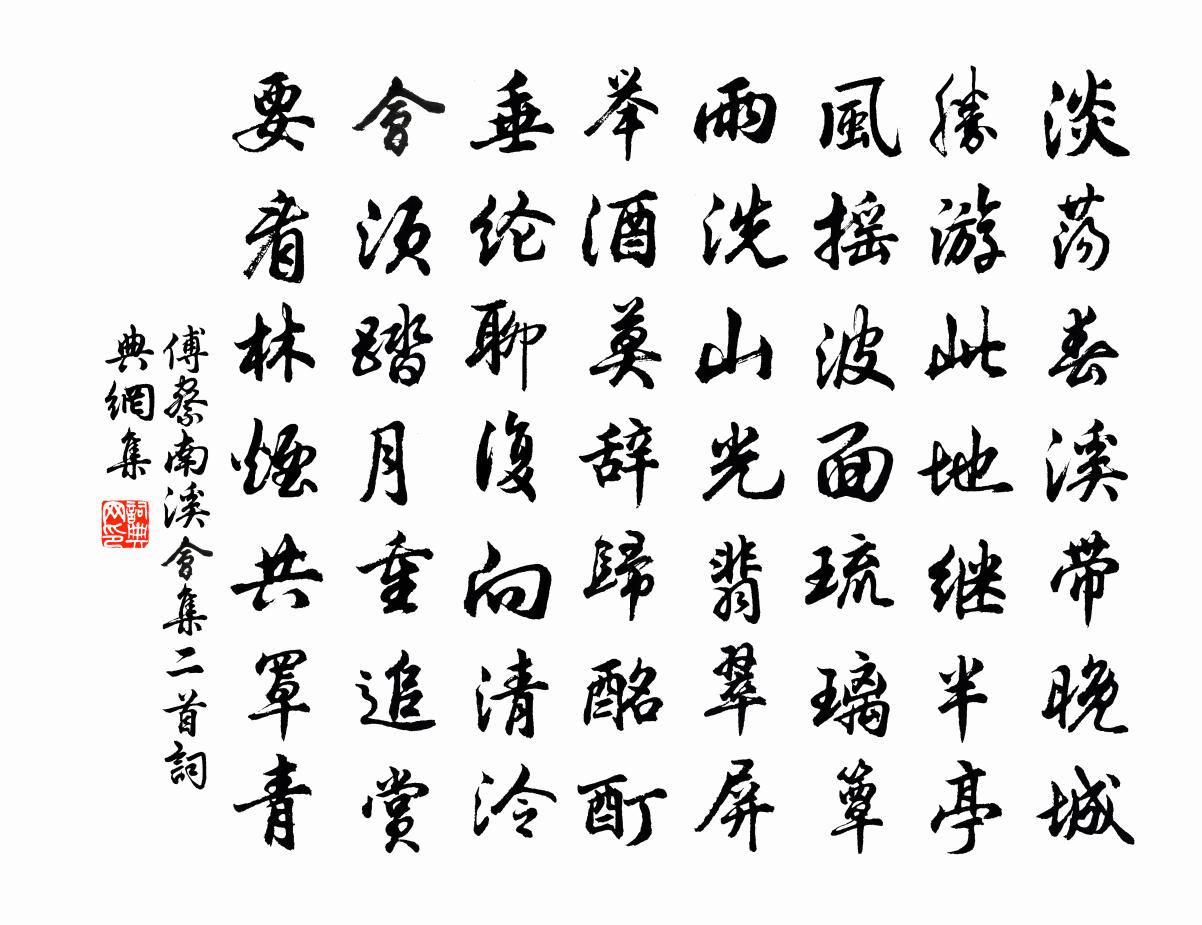 淡荡春溪带晚城
勝游此地继半亭
風摇波面琉璃簟
雨洗山光翡翠屏
举酒莫辞歸酩酊
垂纶聊復向清泠
會须踏月重追赏
要看林煙共罩青
傅察南溪會集二首詞
典網集
詞典网印